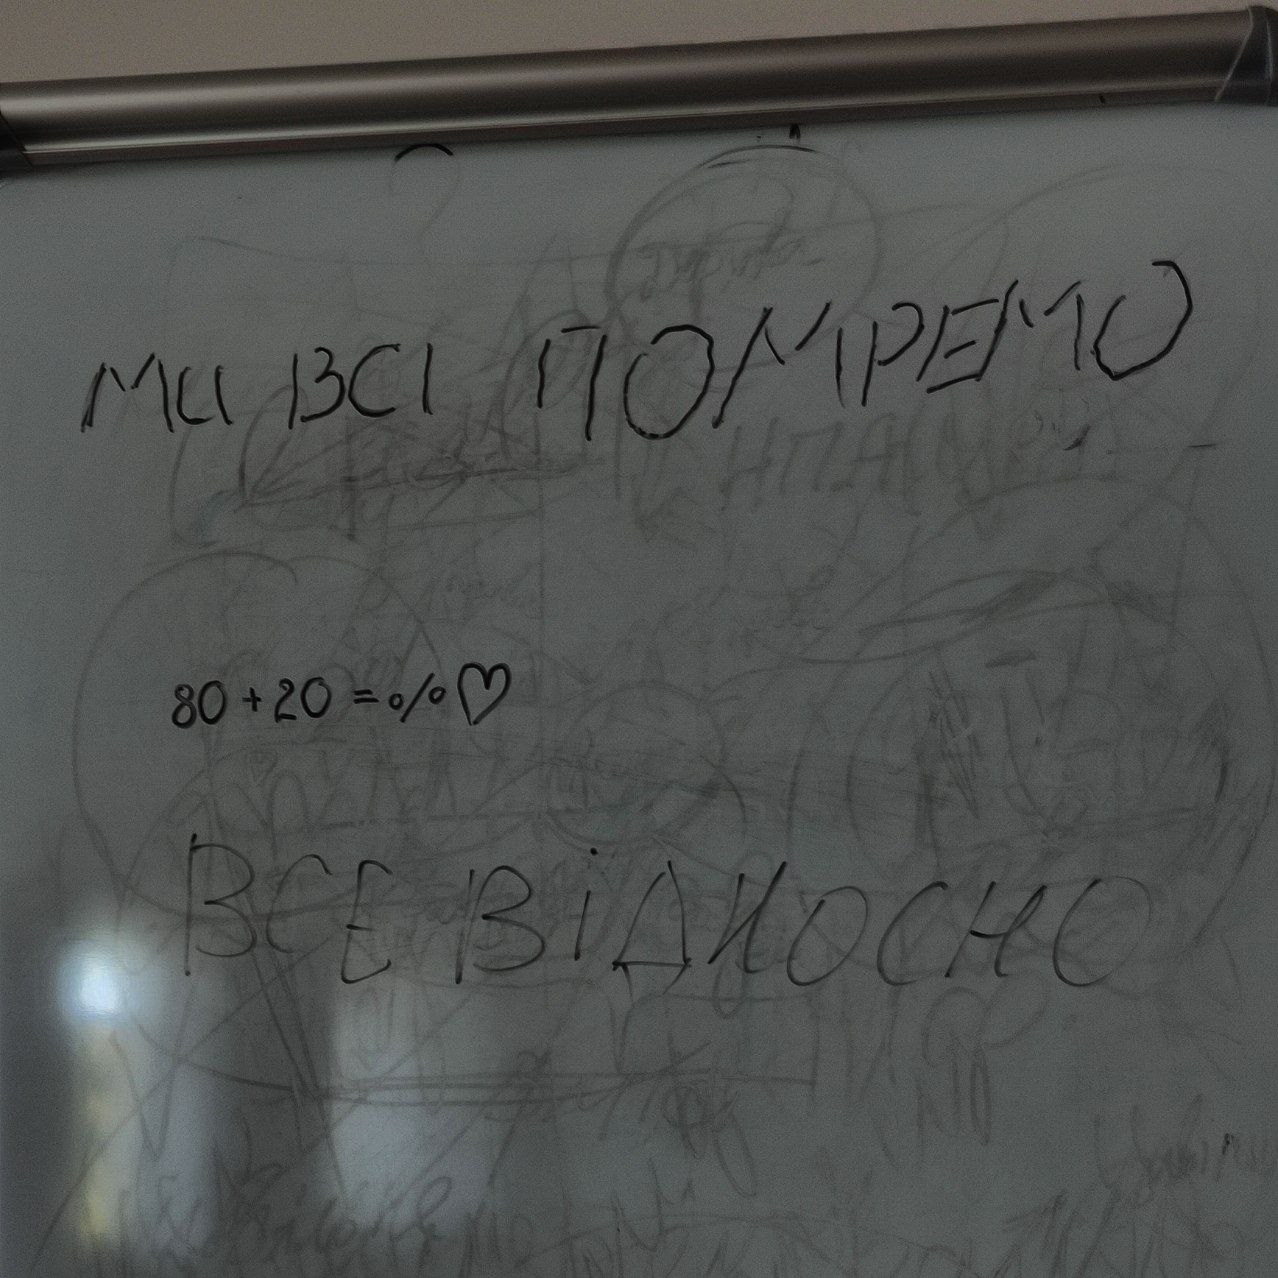 МИ ВСІ ПОМРЕМО
80 + 20 = % ♡
ВСЕ ВІДНОСНО